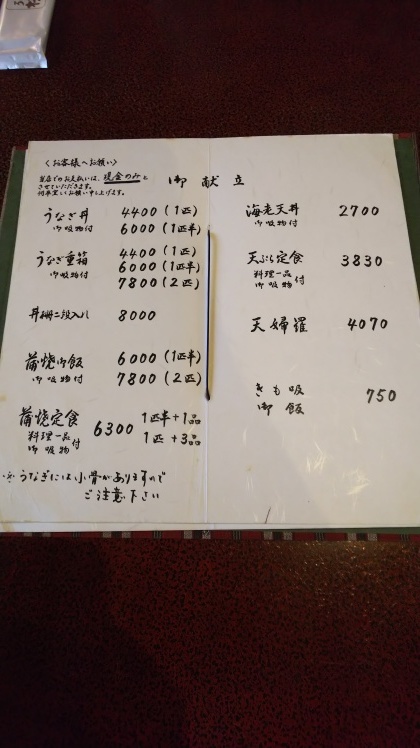 〈お客様へお願い〉
当店でのお支払いは、現金のみと
させていただきます。
何卒宜しくお願い申し上げます。
御献立
うなぎ丼 4400(1匹)
御吸物付 6000(1匹半)
うなぎ重箱 4400(1匹)
御吸物付 6000(1匹半)
7800(2匹)
丼御二段入り 8000
蒲焼御飯 6000(1匹半)
御吸物付 7800(2匹)
蒲焼定食 6300 1匹半+1品
料理一品 御吸物 付 1匹+3品
※うなぎには小骨がありますので
ご注意下さい
海老天丼 2700
御吸物付
天ぷら定食 3830
料理一品 御吸物 付
天婦羅 4070
きも吸 750
御飯